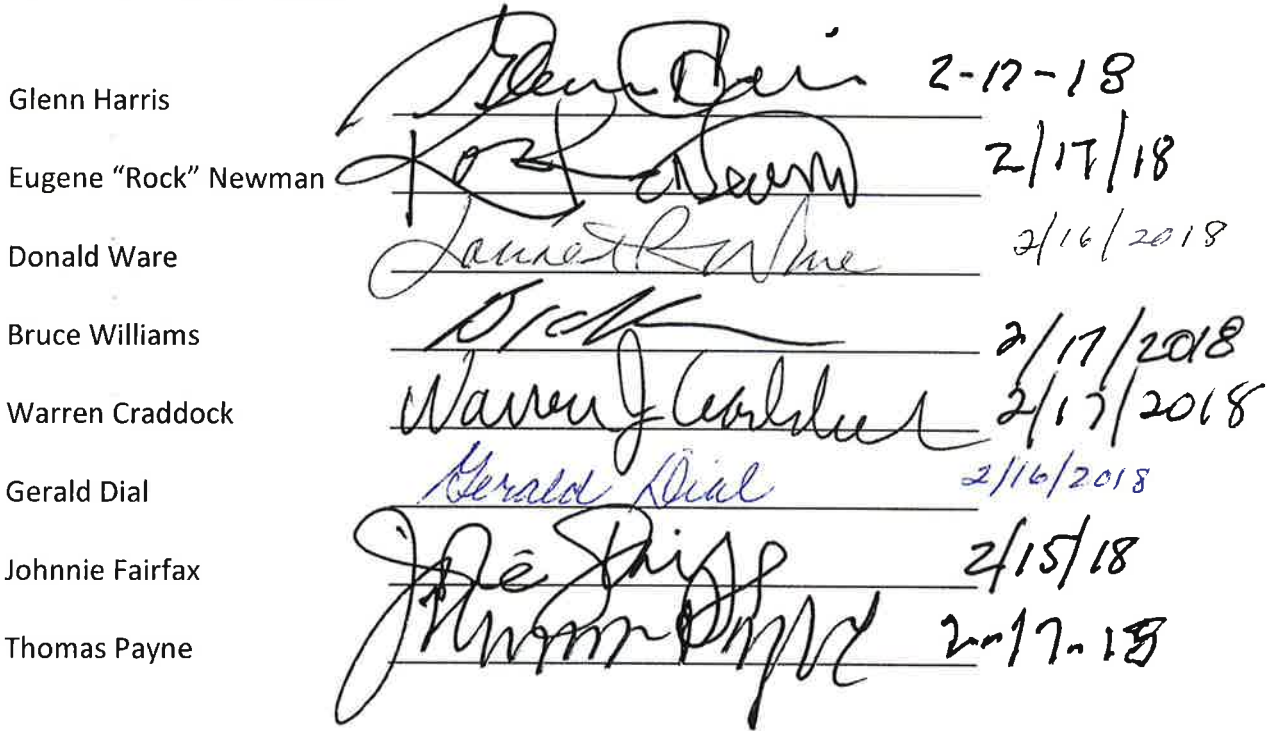 Glenn Harris Glenn Harris 2-17-18
Eugene “Rock” Newman Rock Newman 2/17/18
Donald Ware 2/16/2018
Bruce Williams 2/17/2018
Warren Craddock Warren J Craddock 2/17/2018
Gerald Dial Gerald Dial 2/16/2018
Johnnie Fairfax 2/15/18
Thomas Payne 2-17-18